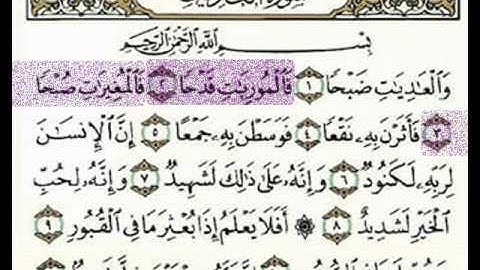 بِسْمِ اللَّهِ الرَّحْمَٰنِ الرَّحِيمِ
وَالْعَادِيَاتِ ضَبْحًا ١ فَالْمُورِيَاتِ قَدْحًا ٢ فَالْمُغِيرَاتِ صُبْحًا
٣ فَأَثَرْنَ بِهِ نَقْعًا ٤ فَوَسَطْنَ بِهِ جَمْعًا ٥ إِنَّ الْإِنْسَانَ
لِرَبِّهِ لَكَنُودٌ ٦ وَإِنَّهُ عَلَىٰ ذَٰلِكَ لَشَهِيدٌ ٧ وَإِنَّهُ لِحُبِّ
الْخَيْرِ لَشَدِيدٌ ٨ ۞ أَفَلَا يَعْلَمُ إِذَا بُعْثِرَ مَا فِي الْقُبُورِ ٩